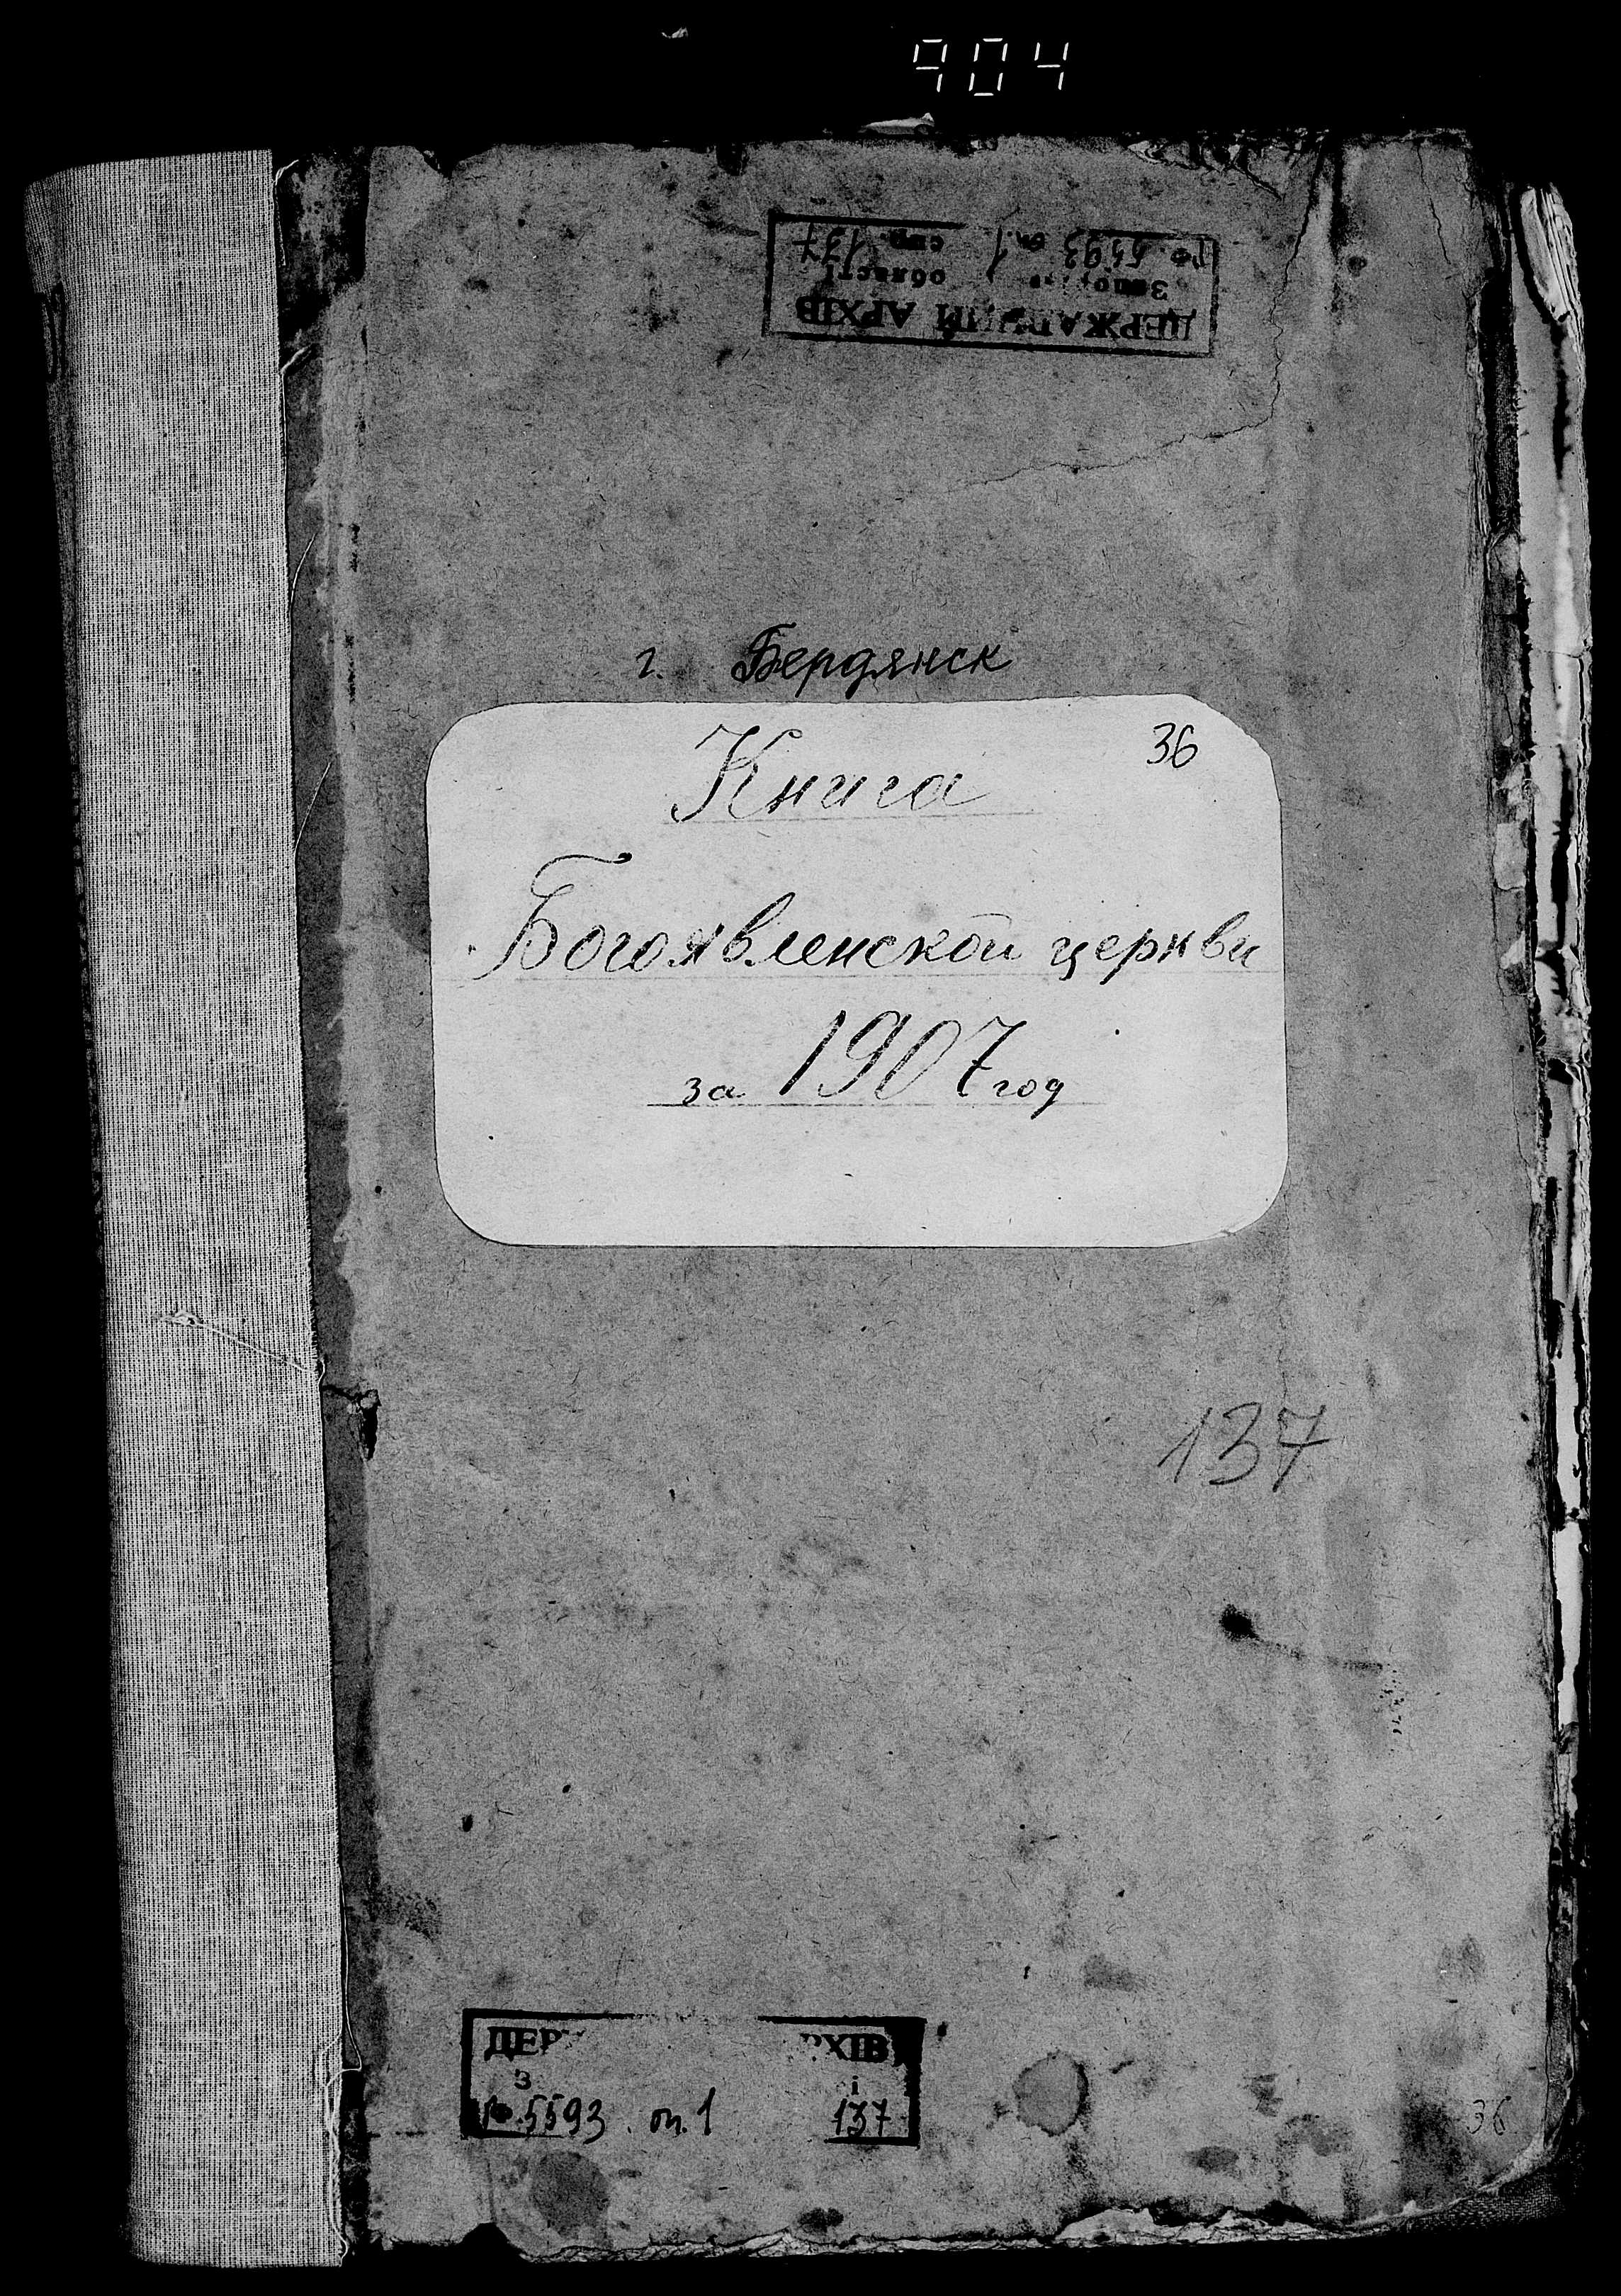 904
ДЕРЖАВНИЙ АРХІВ
області
Ф. 5593 оп. 1 спр. 137
г. Бердянск
36
Книга
Богоявленской церкви
за 1907 год
137
ДЕР РХІВ
З і
Ф. 5593 оп. 1 137
36